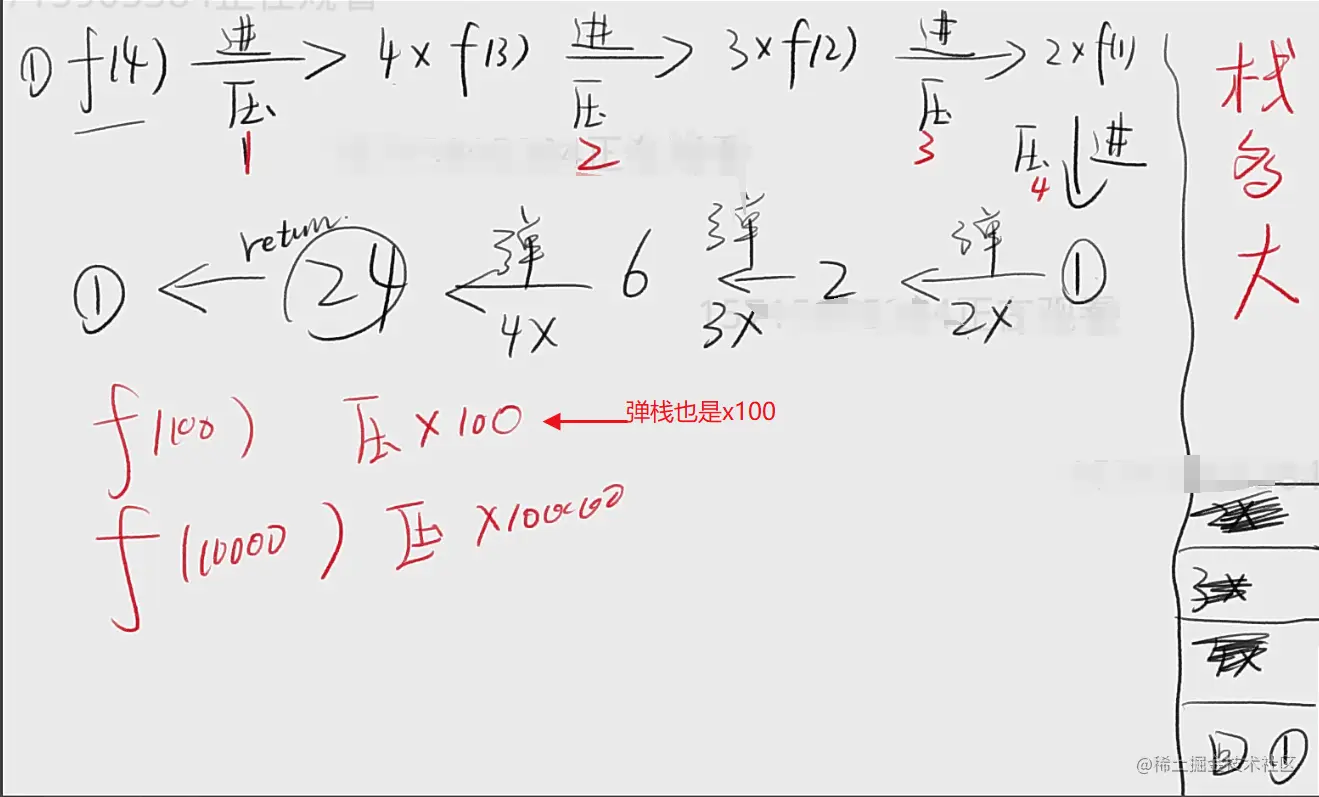 ① f(4) 进 压 1 > 4 x f(3) 进 压 2 > 3 x f(2) 进 压 3 > 2 x f(1)
压 4 进
① return 24 弹 4X 6 弹 3X 2 弹 2X ①
f(100) 压 x 100 弹栈也是x100
f(10000) 压 x 10000
栈
多
大
3
回 ①
@稀土掘金技术社区